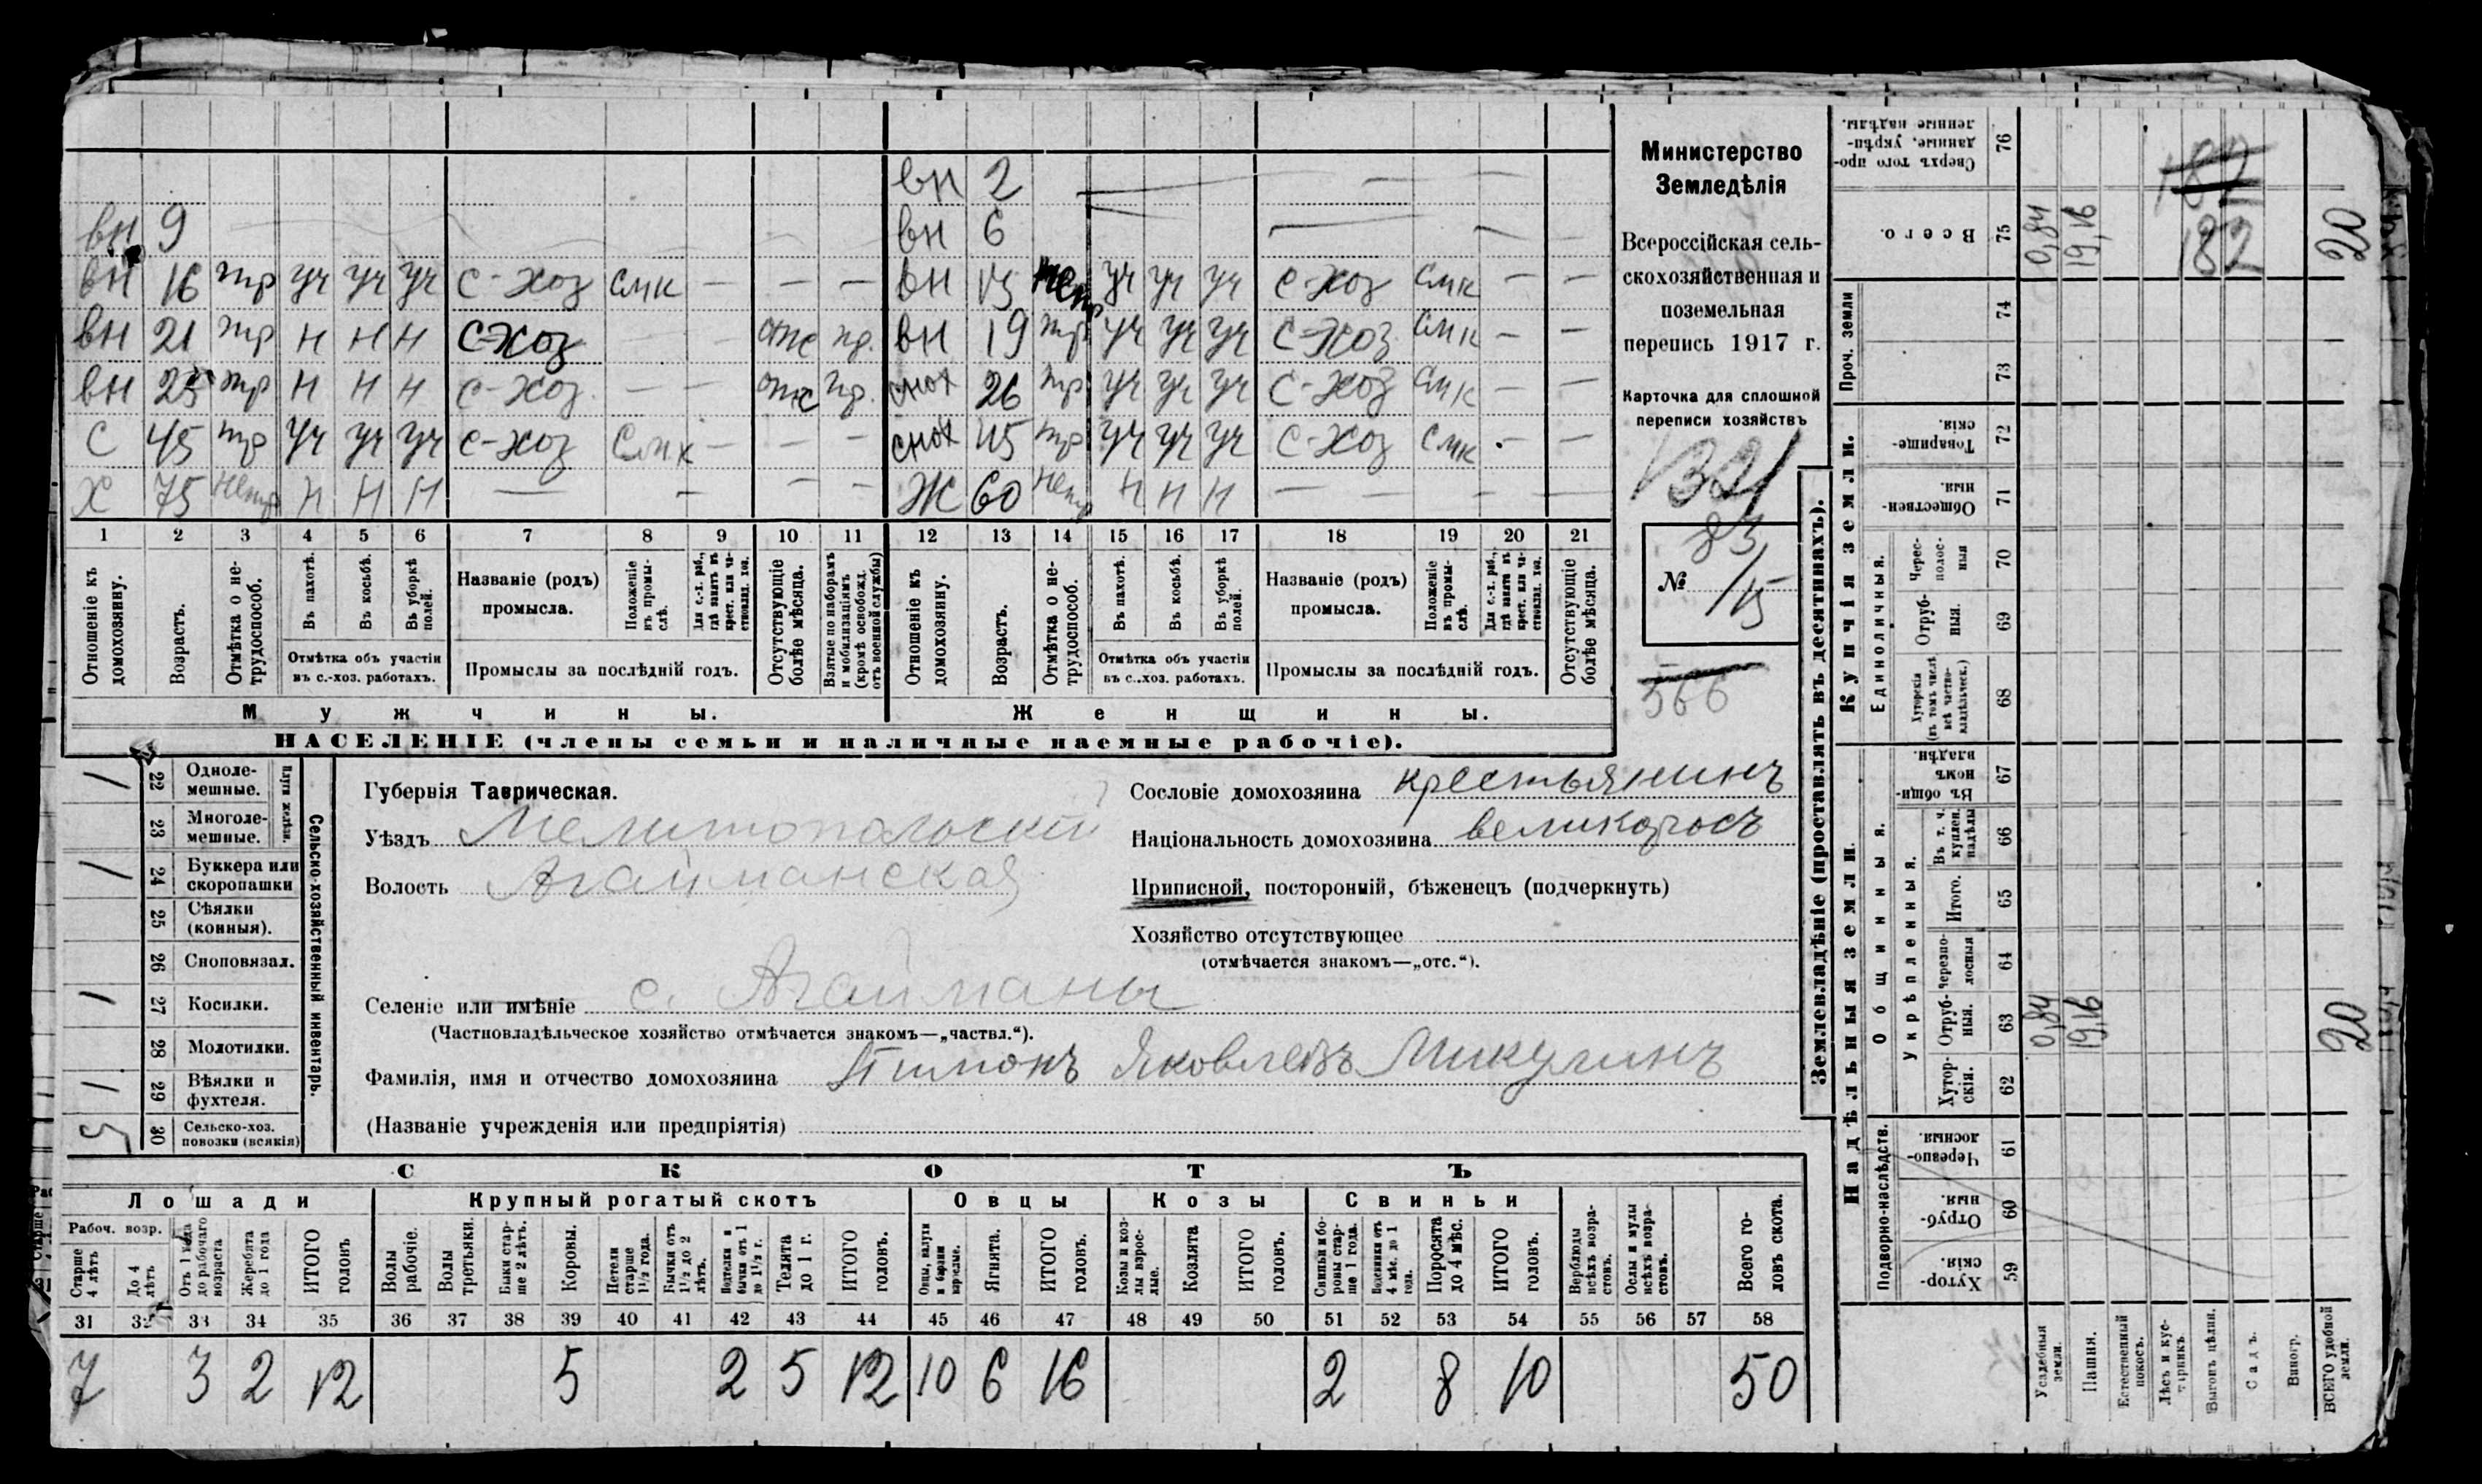 вн 2 — — —
вн 9 вн 6 — —
вн 16 тр уч уч уч с-хоз смк — — — вн 15 нетр уч уч уч с-хоз смк — —
вн 21 тр н н н с-хоз — — отс пр. вн 19 тр уч уч уч с-хоз смк — —
вн 25 тр н н н с-хоз. — — отс пр. снох 26 тр уч уч уч с-хоз смк — —
С 45 тр уч уч уч с-хоз смк — — — снох 45 тр уч уч уч с-хоз смк — —
Х 75 нетр н н н — — — — Ж 60 нетр н н н — — — —
1 2 3 4 5 6 7 8 9 10 11 12 13 14 15 16 17 18 19 20 21
Отношеніе къ домохозяину.
Возрастъ.
Отмѣтка о не-трудоспособ.
Въ пахотѣ.
Въ косьбѣ.
Въ уборкѣ полей.
Отмѣтка объ участіи
въ с.-хоз. работахъ.
Названіе (родъ)
промысла.
Положеніе въ промы-слѣ.
Для с.-х. раб., гдѣ занятъ въ крест. или ча-стновлад. хоз.
Промыслы за послѣдній годъ.
Отсутствующіе болѣе мѣсяца.
Взятые по наборамъ и мобилизаціямъ (кромѣ освобожд. отъ военной службы)
Отношеніе къ домохозяину.
Возрастъ.
Отмѣтка о не-трудоспособ.
Въ пахотѣ.
Въ косьбѣ.
Въ уборкѣ полей.
Отмѣтка объ участіи
въ с..хоз. работахъ.
Названіе (родъ)
промысла.
Положеніе въ промы-слѣ.
Для с.-х. раб., гдѣ занятъ въ крест. или ча-стновлад. хоз.
Промыслы за послѣдній годъ.
Отсутствующіе болѣе мѣсяца.
Мужчины. Женщины.
НАСЕЛЕНІЕ (члены семьи и наличные наемные рабочіе).
Министерство
Земледѣлія
Всероссійская сель-
скохозяйственная и
поземельная
перепись 1917 г.
Карточка для сплошной
переписи хозяйствъ
1321
№ 83/15
566
Сельско-хозяйственный инвентарь.
Плуги желѣзн.
1 22 Одноле-мешные.
23 Многоле-мешные.
1 24 Буккера или скоропашки
25 Сѣялки (конныя).
26 Сноповязал.
1 27 Косилки.
28 Молотилки.
1 29 Вѣялки и фухтеля.
5 30 Сельско-хоз. повозки (всякія)
Губернія Таврическая.
Уѣздъ Мелитопольскій
Волость Агайманская
Селеніе или имѣніе с. Агайманы
(Частновладѣльческое хозяйство отмѣчается знакомъ—„частвл.“).
Фамилія, имя и отчество домохозяина Тимонъ Яковлевъ Микулинъ
(Названіе учрежденія или предпріятія)
Сословіе домохозяина крестьянинъ
Національность домохозяина великоросъ
Приписной, посторонній, бѣженецъ (подчеркнуть)
Хозяйство отсутствующее
(отмѣчается знакомъ—„отс.“).
СКОТЪ
Лошади Крупный рогатый скотъ Овцы Козы Свиньи
Рабоч. возр.
Старше 4 лѣтъ
До 4 лѣтъ
Отъ 1 года до рабочаго возраста
Жеребята до 1 года
ИТОГО головъ
Волы рабочіе.
Волы третьяки.
Быки стар-ше 2 лѣтъ.
Коровы.
Нетели старше 1½ года.
Бычки отъ 1½ до 2 лѣтъ.
Нетели и бычки отъ 1 до 1½ г.
Телята до 1 г.
ИТОГО головъ.
Овцы, валухи и бараны взрослые.
Ягнята.
ИТОГО головъ.
Козы и коз-лы взрос-лые.
Козлята
ИТОГО головъ.
Свиньи и бо-ровы стар-ше 1 года.
Подсвинки отъ 4 мѣс. до 1 года.
Поросята до 4 мѣс.
ИТОГО головъ.
Верблюды всѣхъ возра-стовъ.
Ослы и мулы всѣхъ возра-стовъ.
Всего го-ловъ скота.
31 32 33 34 35 36 37 38 39 40 41 42 43 44 45 46 47 48 49 50 51 52 53 54 55 56 57 58
7 3 2 12 5 2 5 12 10 6 16 2 8 10 50
Землевладѣніе (проставлять въ десятинахъ).
Надѣльныя земли.
Купчія земли.
Проч. земли
Подворно-наслѣдств.
Общинныя.
Укрѣпленныя.
Единоличныя.
Сверхъ того про-данные, укрѣп-ленные надѣлы. 76
Всего. 75 0,84 19,16 182 20
182
74
73
Товарище-скія. 72
Обществен-ныя. 71
Черес-полос-ныя 70
Отруб-ныя. 69
Хуторскія (въ томъ числѣ всѣ частно-владѣльческ.) 68
Въ общин-номъ владѣн. 67
Въ т. ч. куплен. надѣлы 66
Итого. 65
Черезпо-лосныя 64
Отруб-ныя. 63 0,84 19,16 20
Хутор-скія. 62
Черезпо-лосныя. 61
Отруб-ныя. 60
Хутор-скія. 59
Усадебныя земли.
Пашня.
Естественный покосъ.
Лѣсъ и кус-тарникъ.
Выгонъ цѣлин.
Садъ.
Виногр.
ВСЕГО удобной земли.